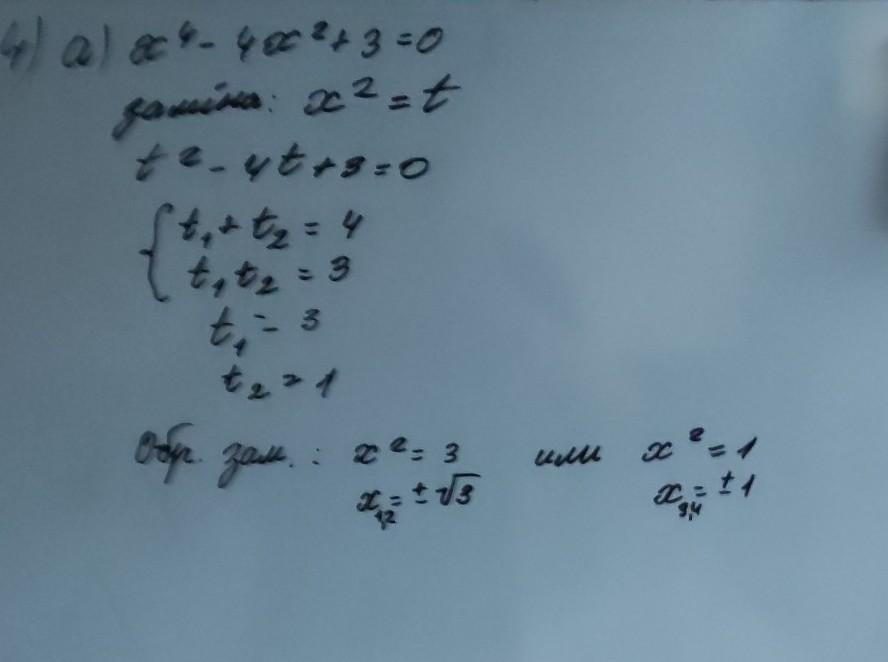 4) а) x⁴ - 4x² + 3 = 0
заміна: x² = t
t² - 4t + 3 = 0
{ t₁ + t₂ = 4
t₁ t₂ = 3
t₁ = 3
t₂ = 1
Обр. зам.: x² = 3 или x² = 1
x₁,₂ = ±√3 x₃,₄ = ±1